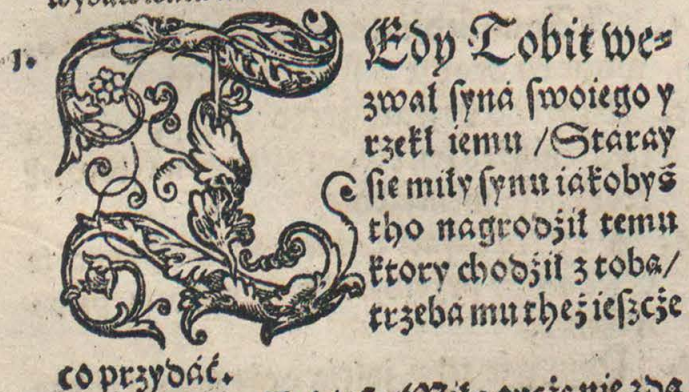 1.
TEdy Tobit we⸗
zwał ſyná ſwoiego y
rzekł iemu /Stáray
ſie miły ſynu iákobyś
tho nagrodźił temu
ktory chodźił z tobą/
trzebá mu theż ieſzcże
co przydáć.